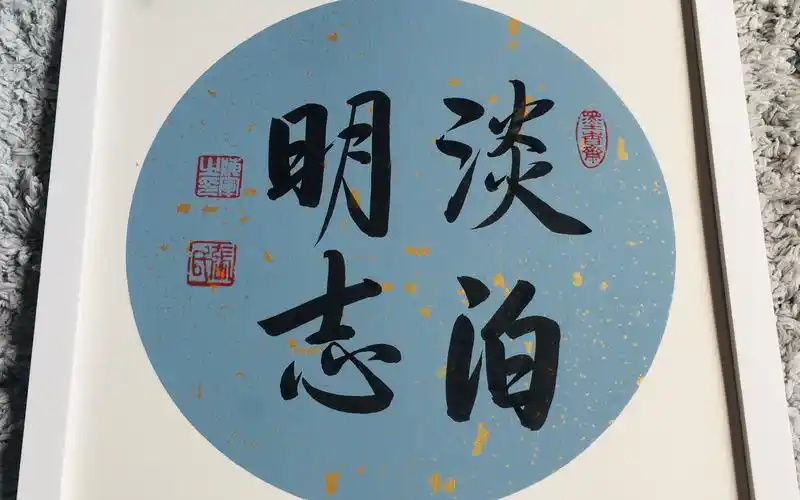 淡泊
明志